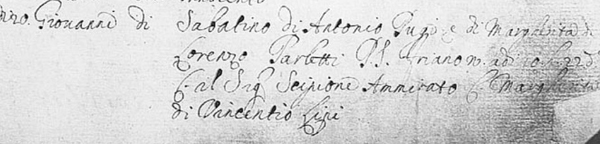 Giovanni di Sabatino di Antonio Pugi e di Margherita di
Lorenzo Parletti P.S. Friano n. adi 10 h. 22 d.
C. al Sag. Scipione Ammirato C. Margherita
di Vincentio Lini